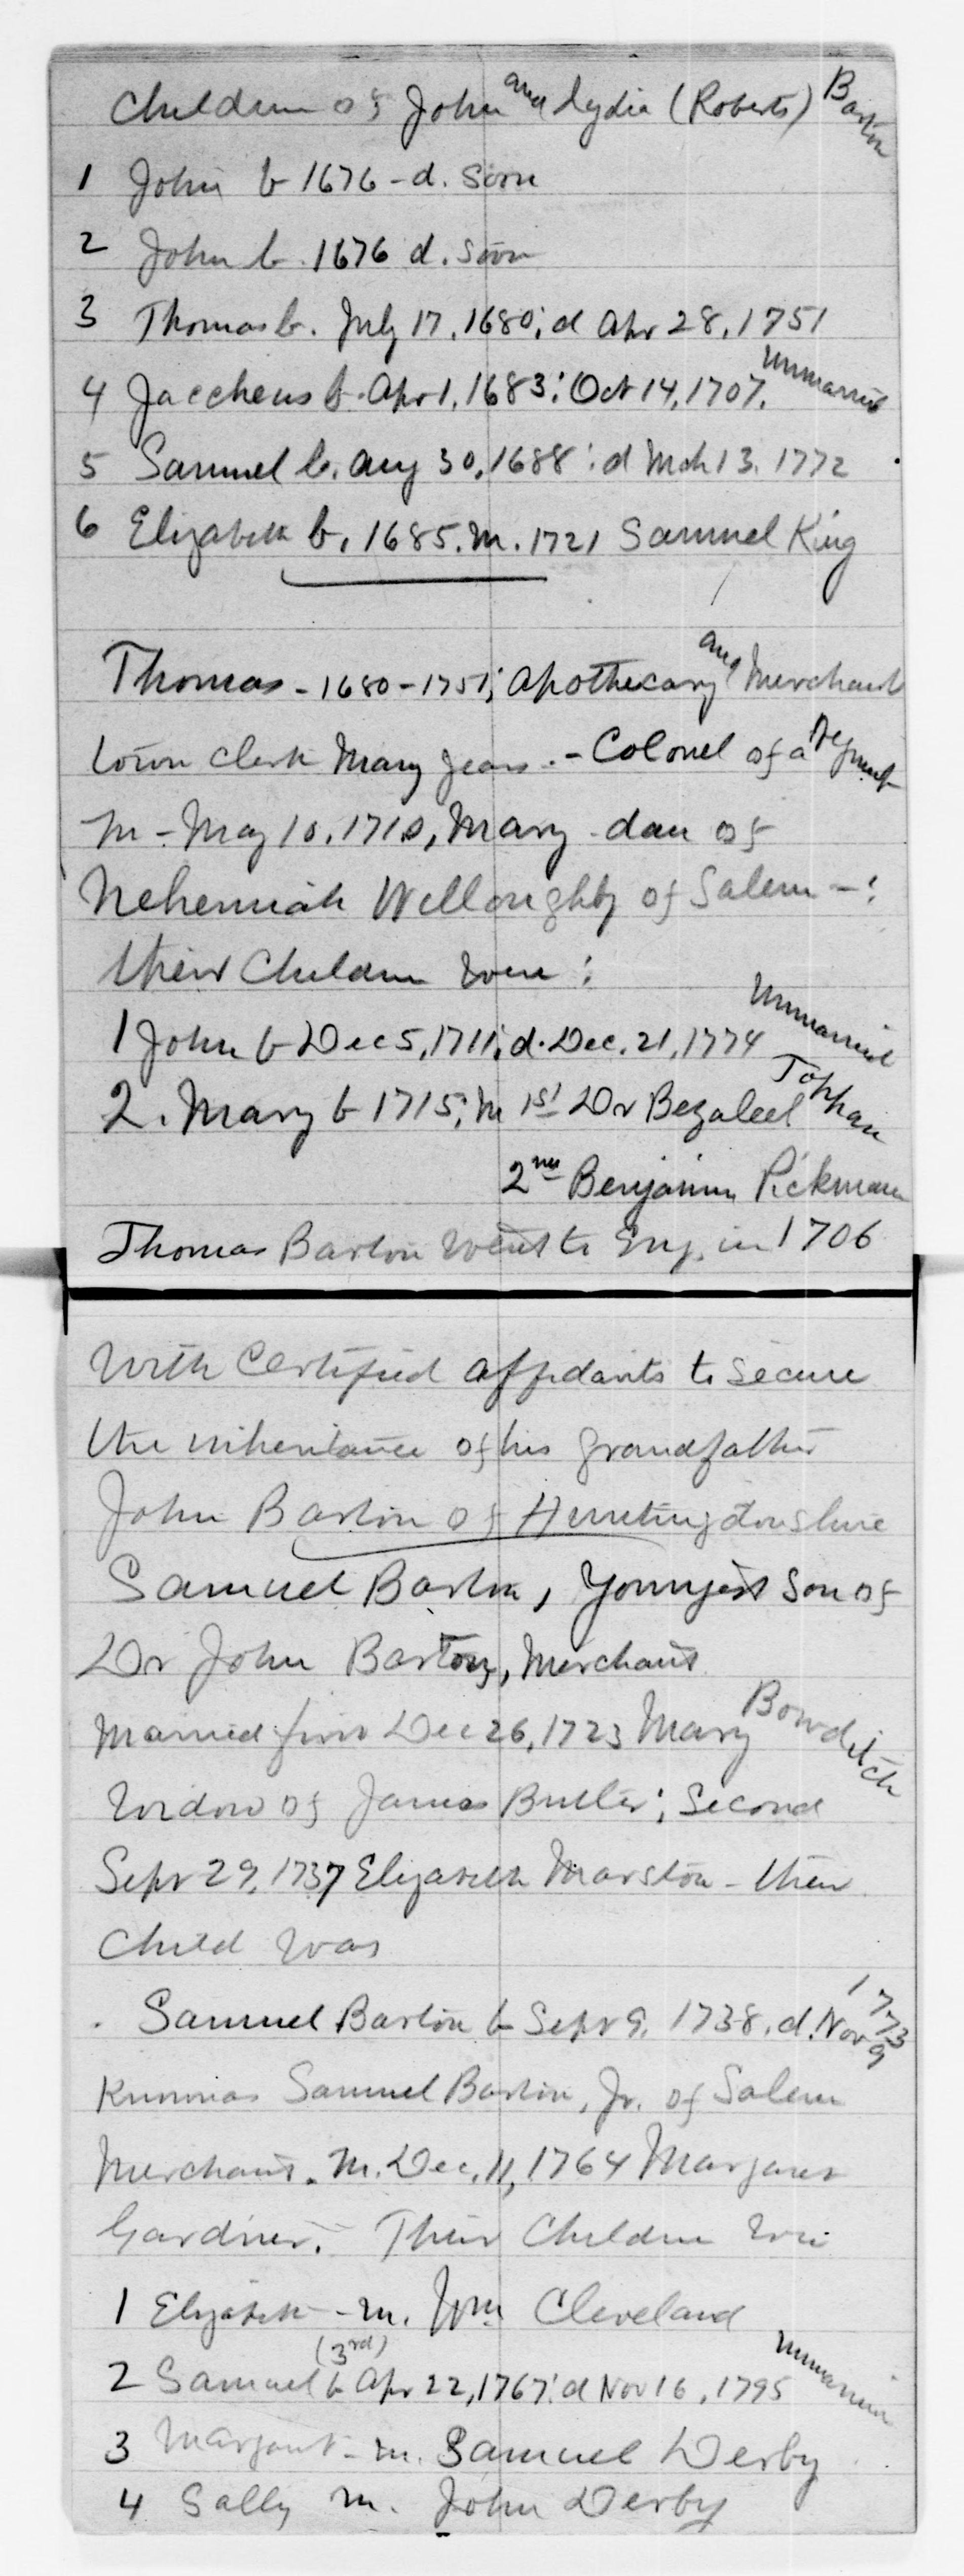 Children of John and Lydia (Roberts) Barton
1 John b 1676 - d. soon
2 John b. 1676 d. soon
3 Thomas b. July 17, 1680; d Apr 28, 1751
4 Zaccheus b. Apr 1, 1683; Oct 14, 1707. unmarried
5 Samuel b. Aug 30, 1688; d Mch 13. 1772
6 Elizabeth b. 1685. m. 1721 Samuel King
Thomas - 1680-1751; Apothecary and Merchant
town clerk many years. - Colonel of a Regiment
m - May 10, 1710, Mary dau of
Nehemiah Willoughby of Salem - ;
their children were :
1 John b Dec 5, 1711; d. Dec. 21, 1774 unmarried
2. Mary b 1715; m 1st Dr Bezaleel Toppan
2nd Benjamin Pickman
Thomas Barton went to Eng. in 1706
with certified affidavits to secure
the inheritance of his grandfather
John Barton of Huntingdonshire
Samuel Barton, youngest son of
Dr John Barton, Merchant
married first Dec 26, 1723 Mary Bowditch
widow of James Butler; second
Sept 29, 1737 Elizabeth Marston - their
child was
. Samuel Barton b Sept 9. 1738. d. Nov 9 1773
Known as Samuel Barton, Jr. of Salem
Merchant. m. Dec. 11, 1764 Margaret
Gardner. Their children were
1 Elizabeth - m. Wm Cleveland
2 Samuel (3rd) b Apr 22, 1767; d Nov 16, 1795 unmarried
3 Margaret - m. Samuel Derby
4 Sally m. John Derby